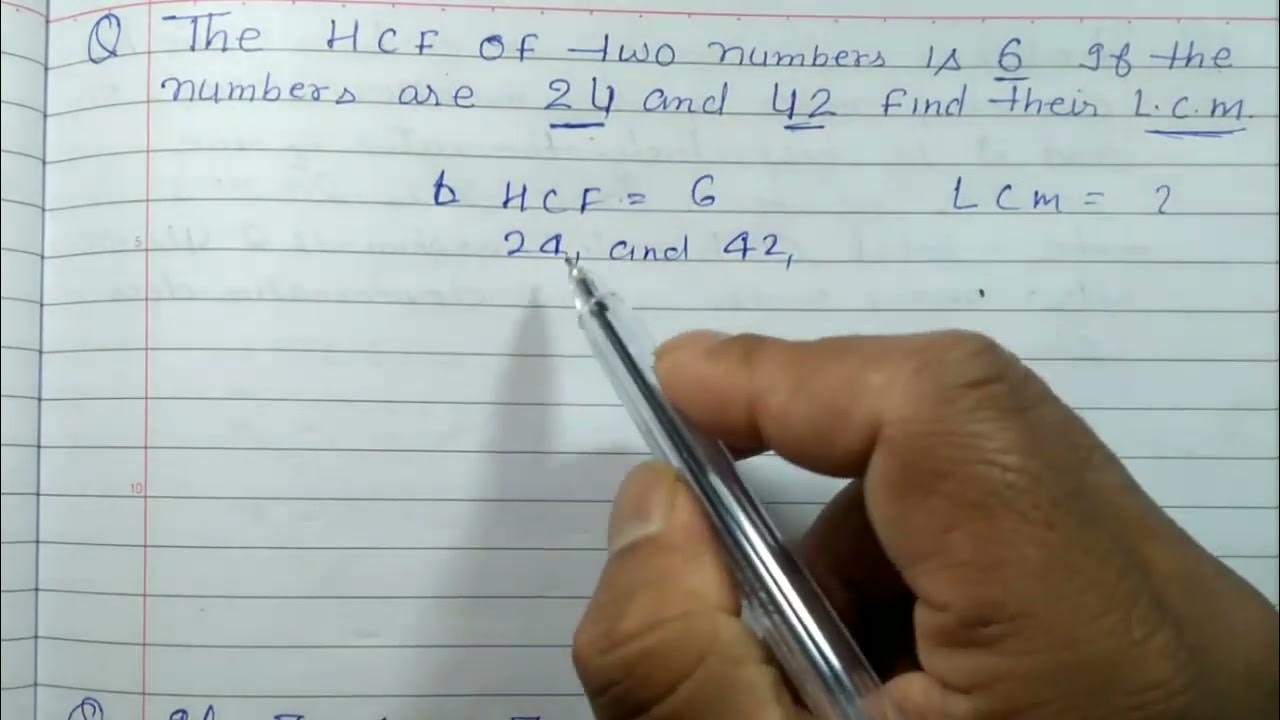 Q The HCF OF two numbers is 6 If the
numbers are 24 and 42 find their L.C.M.
HCF = 6 LCM = ?
24, and 42,
5
10
Q